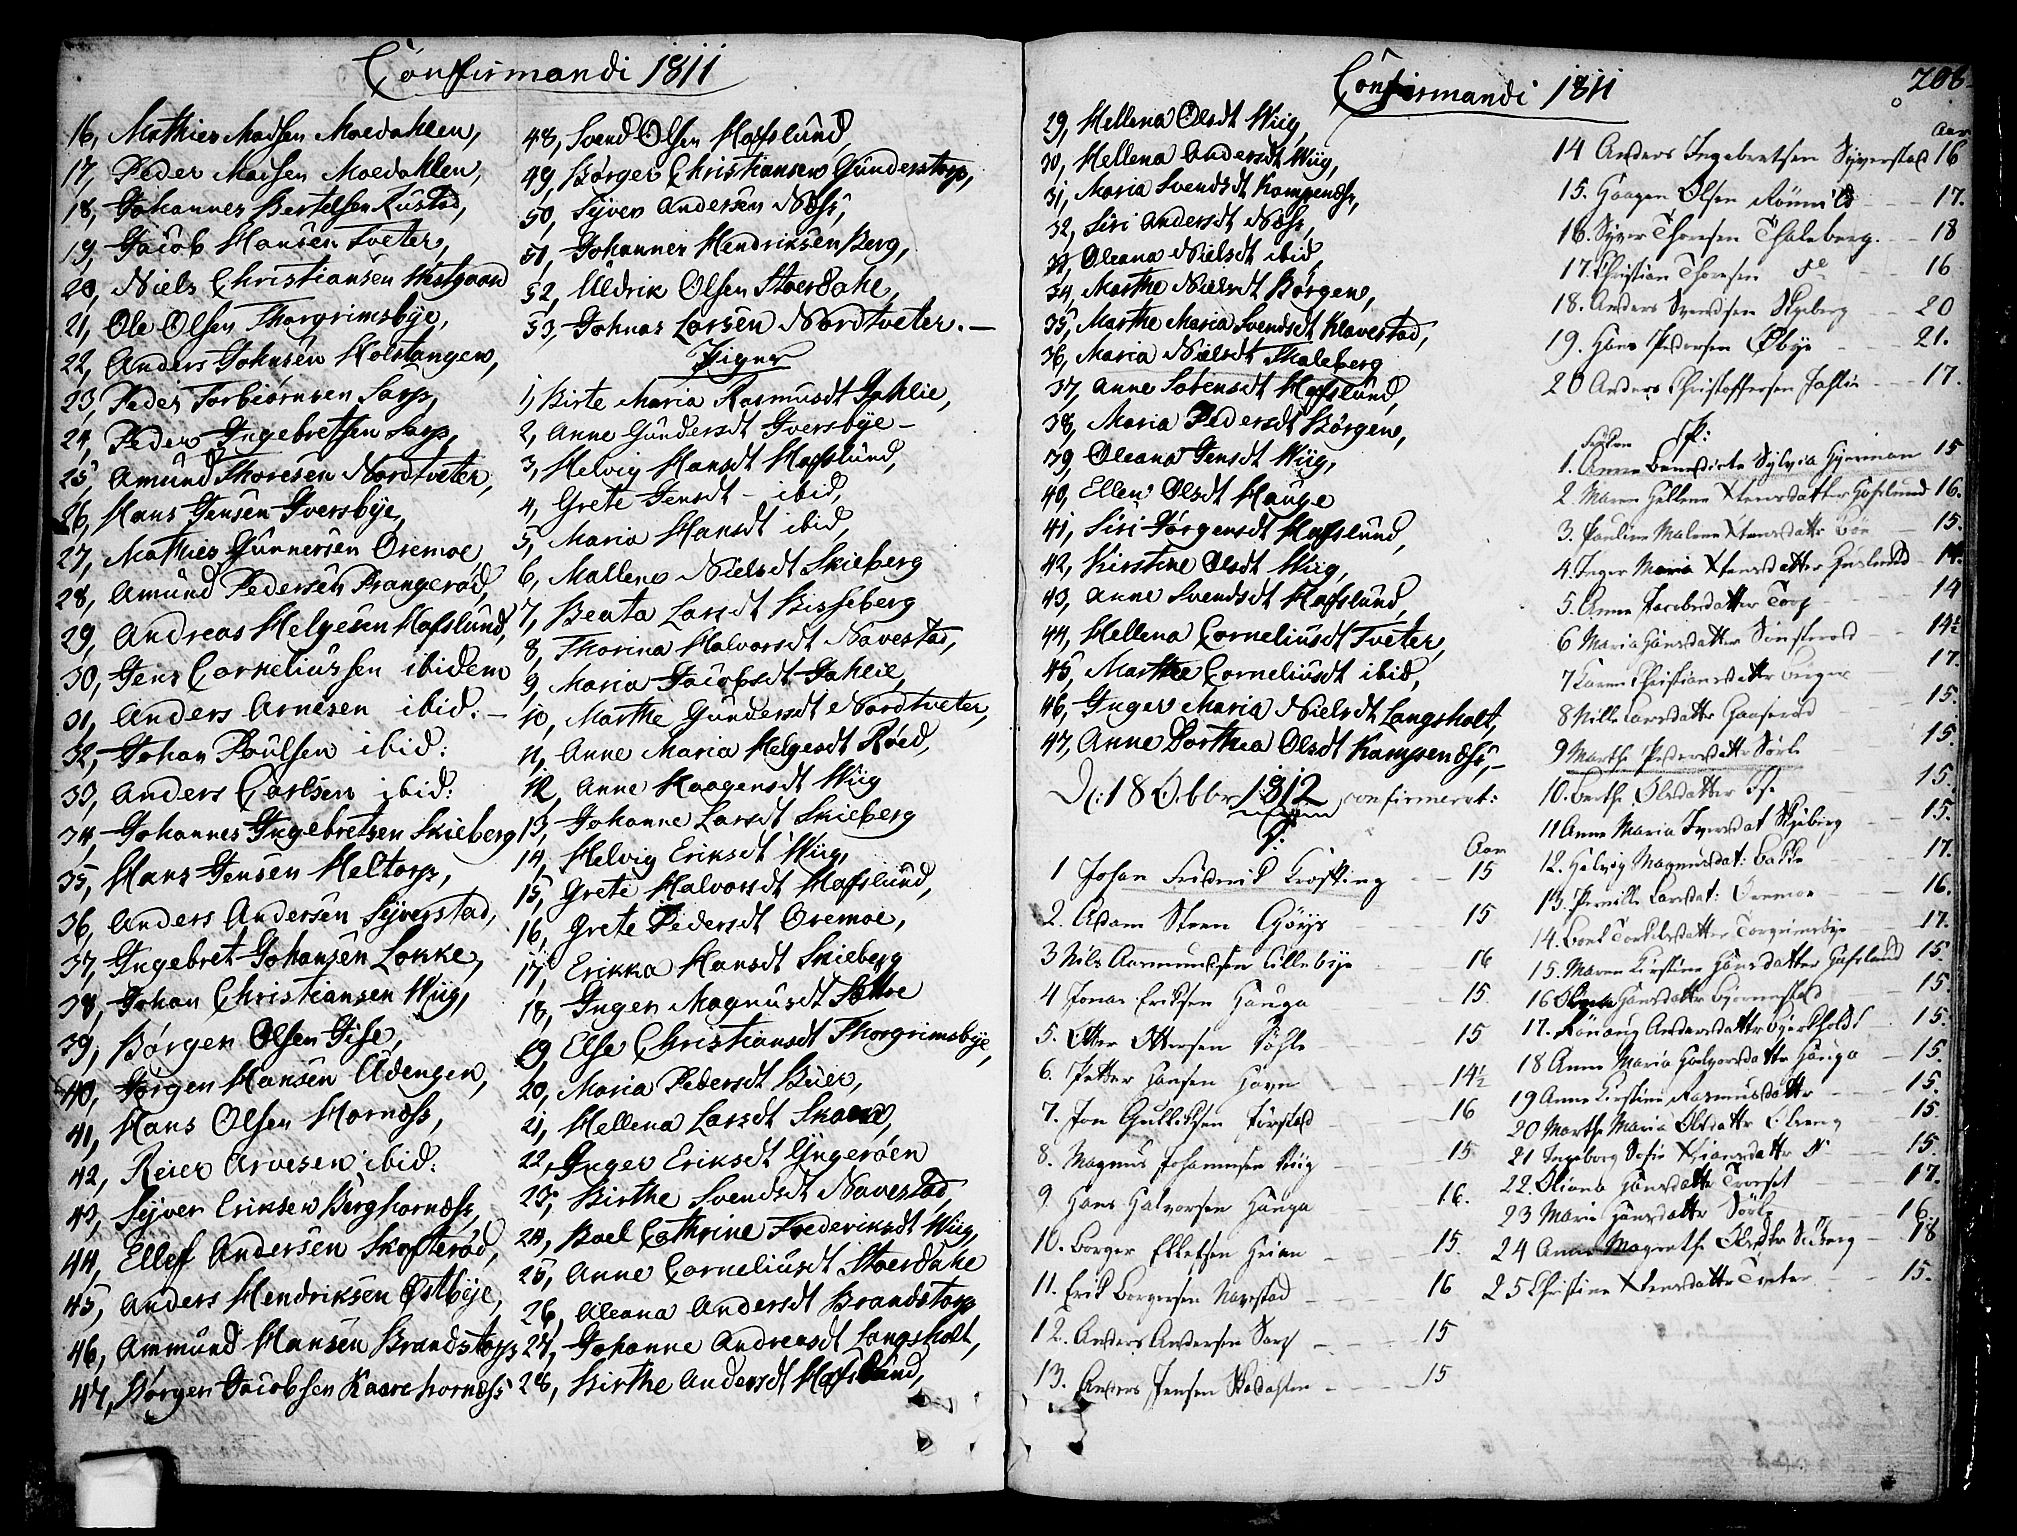 Confirmandi 1811
16, Mathies Madsen Moedahlen,
17, Peder Madsen Moedahlen,
18, Johannes Bertelsen Rustad,
19, Jacob Hansen Tveter,
20, Niels Christiansen Westgaard
21, Ole Olsen Thorgrimsbye,
22, Anders Johnsen Holstangen,
23, Peder Torbiørnsen Sarp,
24, Peder Ingebretsen Sarp,
25, Amund Thoresen Nordtveter,
26, Hans Jensen Iversbye,
27, Mathies Gunnersen Oremoe
28, Amund Pedersen Prangerød,
29, Andreas Helgesen Hafslund,
30, Jens Corneliussen ibidem
31, Anders Arnesen ibid. –
32, Johan Poulsen ibid:
33, Anders Carlsen ibid:
34, Johannes Ingebretsen Skieberg
35, Hans Jensen Heltorp,
36, Anders Andersen Syverstad,
37, Ingebret Johansen Løkke,
38, Johan Christiansen Wiig,
39, Børgen Olsen Gise,
40, Jørgen Hansen Udengen,
41, Hans Olsen Hornæss,
42, Reier Arvesen ibid:
43, Syver Eriksen Berghornæss,
44, Ellef Andersen Skofterød,
45, Anders Hendriksen Østbye,
46, Ammund Hansen Brandstorp
47, Børger Jacobsen Kaarehornæss
48, Svend Olsen Hafslund,
49, Børger Christiansen Gunderstorp,
50, Syver Andersen Næss,
51, Johannes Hendriksen Berg,
52, Uldrik Olsen Stoerdahe,
53, Johnas Larsen Nordtveter. –
Piger
1, Birte Maria Rasmusdt Jahlie,
2, Anne Gundersdt Iversbye –
3, Helvig Hansdt Hafslund,
4, Grete Jensdt – ibid,
5, Maria Hansdt ibid,
6, Mallene Nielsdt Skieberg
7, Beata Larsdt Bisseberg
8, Thorina Halvorsdt Navestad,
9, Maria Jacobsdt Jahlie,
10, Marthe Gundersdt Nordtveter,
11, Anne Maria Helgesdt Røed,
12, Anne Haagensdt Wiig
13, Johanne Larsdt Skieberg
14, Helvig Eriksdt Wiig,
15, Grete Halvorsdt Hafslund,
16, Grete Pedersdt Oremoe,
17, Erikka Hansdt Skieberg
18, Inger Magnusdt
19, Else Christiansdt Thorgrimsbye,
20, Maria Pedersdt Buer,
21, Hellena Larsdt
22, Inger Eriksdt Yngerøen
23, Birthe Svendsdt Navestad,
24, Boel Cathrine Frederiksdt Wiig,
25, Anne Corneliusdt Stoerdahe
26, Oleana Andersdt Brandstorp
27, Johanne Andreasdt Langsholt,
28, Birthe Andersdt Hafslund,
Confirmandi 1811
208
29, Hellena Olsdt Wiig,
30, Hellena Andersdt Wiig,
31, Maria Svendsdt Kampenæss,
32, Siri Andersdt Næss,
33, Oleana Nielsdt ibid,
34, Marthe Nielsdt Børgen,
35, Marthe Maria Svendsdt Klavestad,
36, Maria Nielsdt Thaleberg
37, Anne Sørensdt Hafslund,
38, Maria Pedersdt Børgen,
39, Oleana Jensdt Wiig,
40, Ellen Olsdt Hauge
41, Siri Jørgensdt Hafslund,
42, Kirstine Olsdt Wiig,
43, Anne Svendsdt Hafslund,
44, Hellena Corneliusdt Tveter,
45, Marthe Corneliusdt ibid,
46, Inger Maria Nielsdt Langsholt,
47, Anne Dorthea Olsdt Kampenæss, –
D: 18 Octbr 1812 confirmeret:
Aar
1 Johan Fridrik Krossing 15
2. Adam Steen Gøys 15
3 Nils Aamundsen Ullebye 16
4 Jonas Eriksen Hauga 15.
5. Otter Ottersen Dahle 15
6. Petter Hansen Havn 14½
7. Jon Gullichsen 16
8. Magnus Johannesen Viig 15
9. Hans Halvorsen Hauga 16.
10. Borger Ellefsen Heian 15.
11. Erik Borgersen Navestad 16
12. Anders Andersen Sarp 15
13. Anders Jensen Modahlen 15
Aar
14 Anders Ingebretsen Syverstad 16
15. Haagen Olsen 17.
16. Syver Thoresen Thaleberg. 18
17. Christian Thoresen do 16
18. Anders Svendsen Skjeberg 20
19. Hans Pedersen Østbye 21.
20 Anders Christoffersen Jahlie 17.
1. Anne Benedicte Sylvia Hjerman 15
2. Maren Hellene Xtensdatter Hafslund 16.
3. Pauline Malene Xtensdattr Bøe 15.
4. Inger Maria Xtensdatter Hafslund 14.
5. Anne Jacobsdatter Torp 14
6 Maria Hansdatter 14½
7 Karen Christiansdattr Børgen 17.
8 Nille Larsdattr 15.
9 Marthe Pedersdattr Sørli 15.
10. Berthe Olsdatter Ise 15.
11 Anne Maria Iversdat Skjeberg 15.
12. Helvig Magnusdat: Bakke 17.
13. Pernille Larsdat: Oremoe 16.
14. Boel Torkelsdatter Torgrimsbye 17.
15. Maren Kirstine Hansdatter Hafslund 15.
16 Hansdattr Bjørnestad 15.
17. Rønaug Andersdattr Bjerkholdt 15.
18 Anne Maria Halvorsdattr Hauga 15.
19 Anne Kirstine Rasmusdattr 15.
20 Marthe Maria Olsdattr 15.
21 Ingeborg Sofie Xtiansdattr do 15.
22. Oliana Hansdattr 17.
23 Marie Hansdattr Sørli 16.
24 Anne Magrethe Olsdtr 18
25 Christine Xtensdattr Tveter 15.